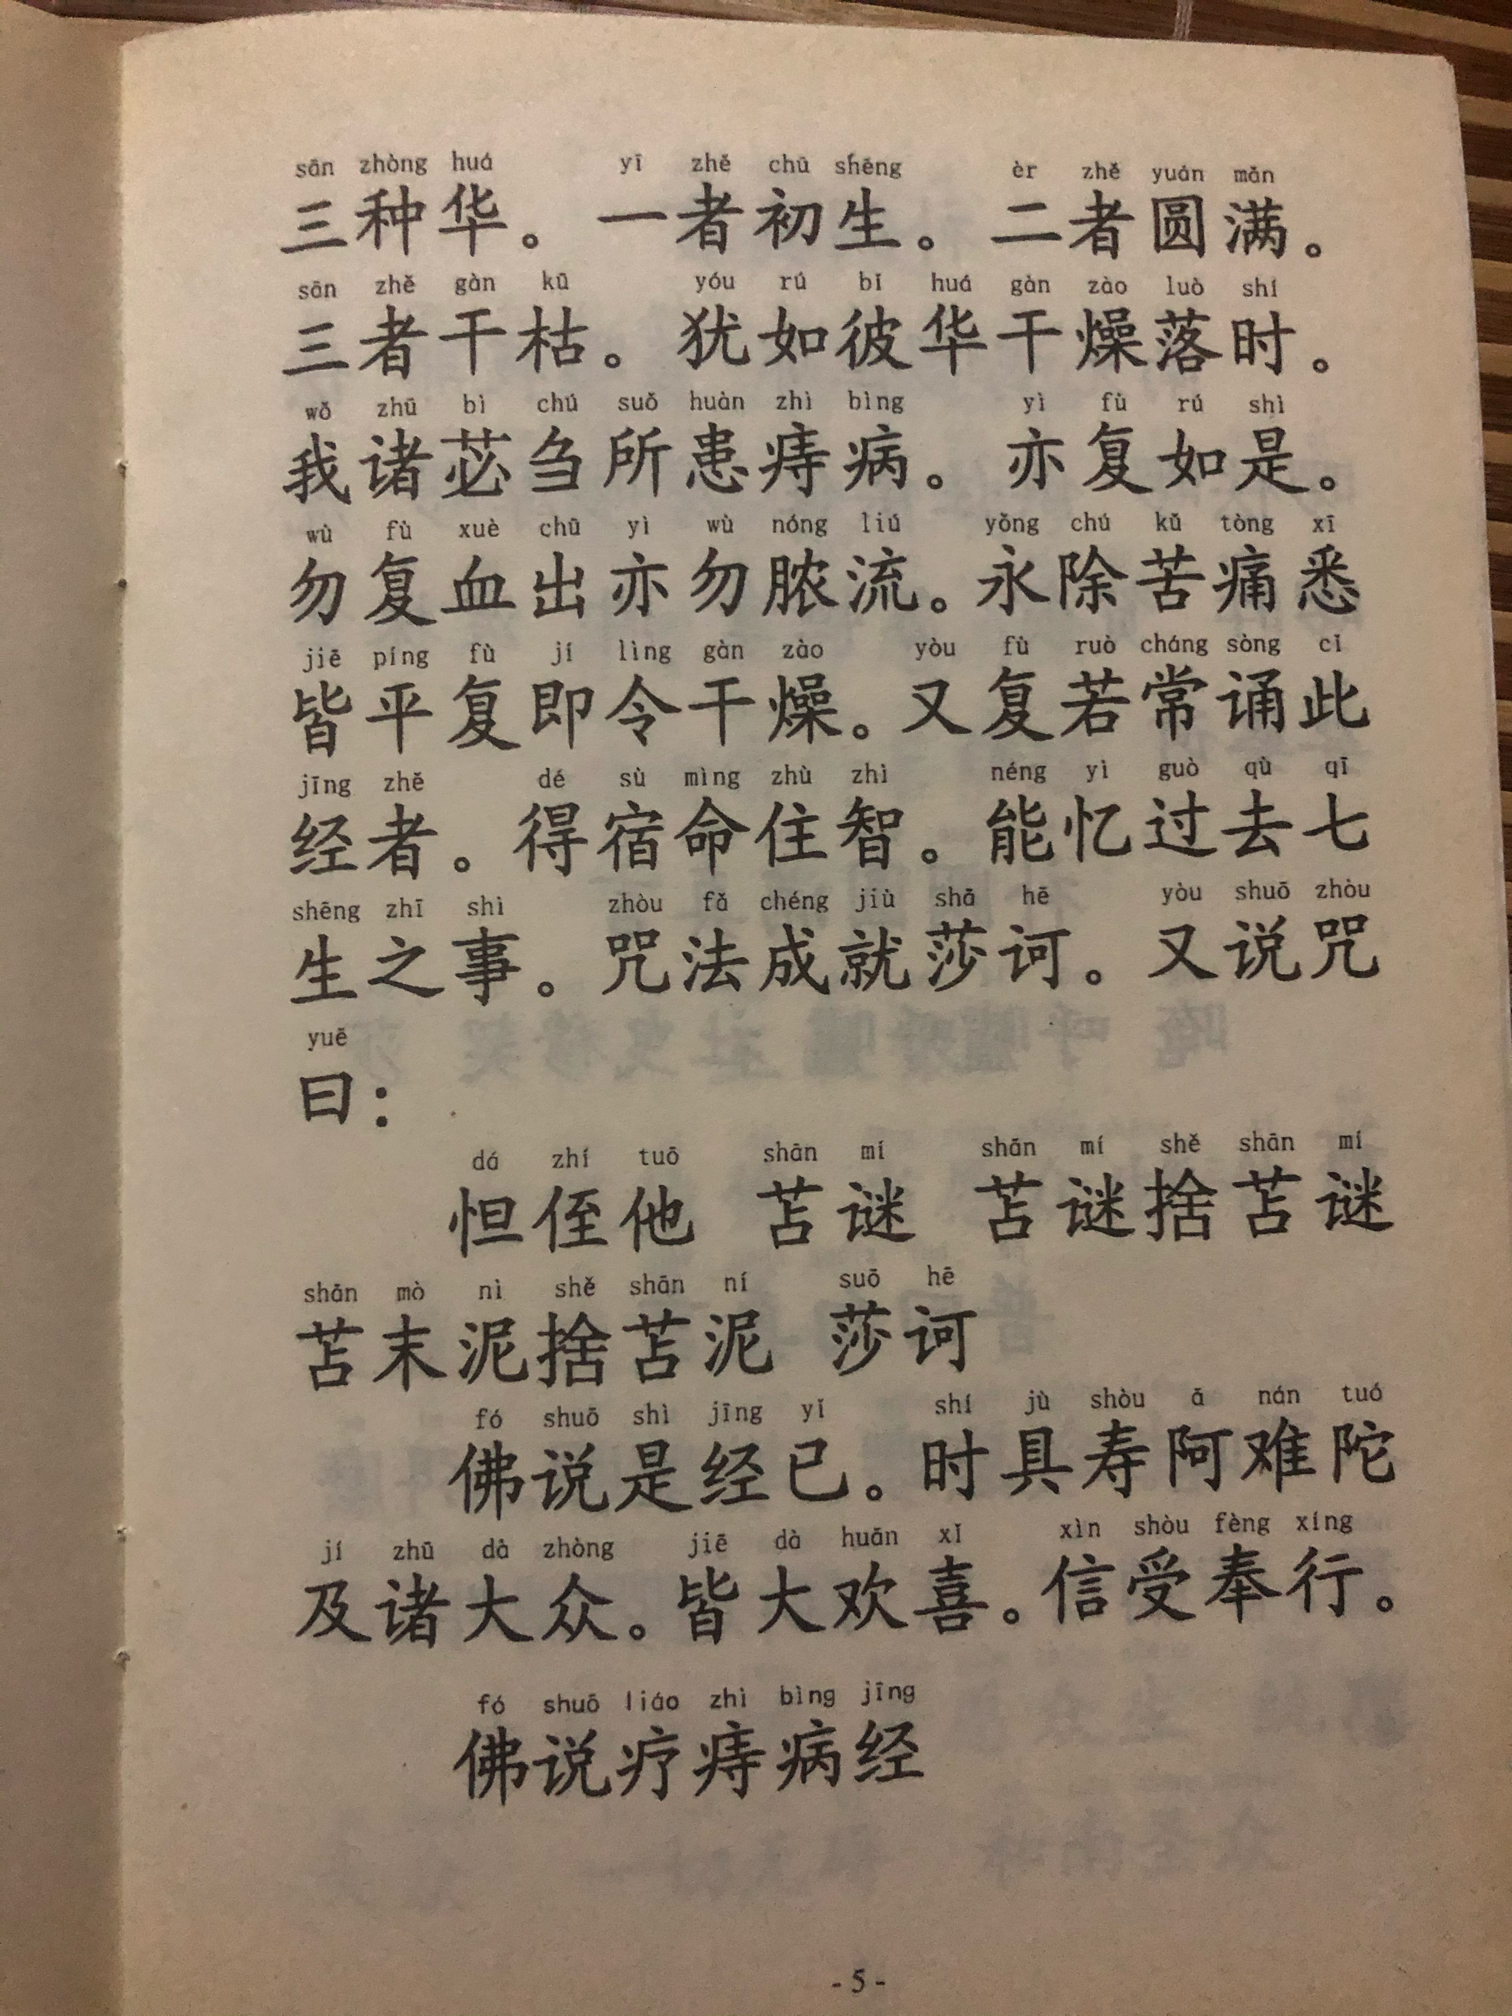 sān zhòng huá yī zhě chū shēng èr zhě yuán mǎn
三种华。一者初生。二者圆满。
sān zhě gàn kū yóu rú bǐ huá gàn zào luò shí
三者干枯。犹如彼华干燥落时。
wǒ zhū bì chú suǒ huàn zhì bìng yì fù rú shì
我诸苾刍所患痔病。亦复如是。
wù fù xuè chū yì wù nóng liú yǒng chú kǔ tòng xī
勿复血出亦勿脓流。永除苦痛悉
jiē píng fù jí lìng gàn zào yòu fù ruò cháng sòng cǐ
皆平复即令干燥。又复若常诵此
jīng zhě dé sù mìng zhù zhì néng yì guò qù qī
经者。得宿命住智。能忆过去七
shēng zhī shì zhòu fǎ chéng jiù shā hē yòu shuō zhòu
生之事。咒法成就莎诃。又说咒
yuē
曰：
dá zhí tuō shān mí shān mí shě shān mí
怛侄他 苫谜 苫谜捨苫谜
shān mò nì shě shān ní suō hē
苫末泥捨苫泥 莎诃
fó shuō shì jīng yǐ shí jù shòu ā nán tuó
佛说是经已。时具寿阿难陀
jí zhū dà zhòng jiē dà huān xǐ xìn shòu fèng xíng
及诸大众。皆大欢喜。信受奉行。
fó shuō liáo zhì bìng jīng
佛说疗痔病经
- 5 -